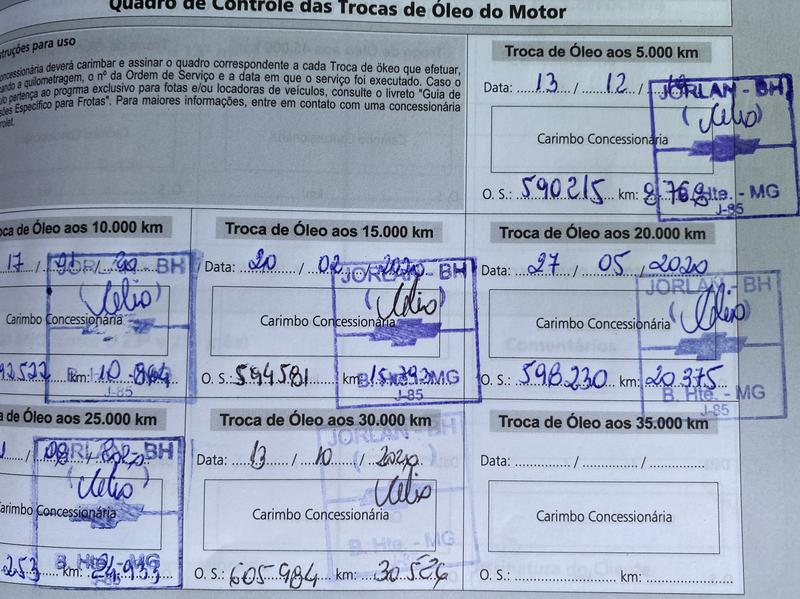 Quadro de Controle das Trocas de Óleo do Motor
truções para uso
oncessionária deverá carimbar e assinar o quadro correspondente a cada Troca de ökeo que efetuar,
ando a quilometragem, o nº da Ordem de Serviço e a data em que o serviço foi executado. Caso o
ulo pertença ao progrma exclusivo para fotas e/ou locadoras de veículos, consulte o livreto "Guia de
sões Específico para Frotas". Para maiores informações, entre em contato com uma concessionária
rolet.
Troca de Óleo aos 5.000 km
Data: 13 / 12 /
JORLAN - BH
Célio
Carimbo Concessionária
O. S.: 590215 km: 8768
B. Hte. - MG
J-85
oca de Óleo aos 10.000 km
17 / 01 / 20
JORLAN - BH
Célio
Carimbo Concessionária
92522 km: 10 864
B. H
J-85
Troca de Óleo aos 15.000 km
Data: 20 / 02 / 2020
JORLAN - BH
Célio
Carimbo Concessionária
O. S.: 594581 km: 15.392
B. MG
J-85
Troca de Óleo aos 20.000 km
Data: 27 / 05 / 2020
JORLAN - BH
Célio
Carimbo Concessionária
O. S.: 598230 km: 20375
B. Hte. - MG
J-85
a de Óleo aos 25.000 km
BH
Célio
arimbo Concessionária
253 km: 24.933
B. Hte. - MG
J-85
Troca de Óleo aos 30.000 km
JORLAN - BH
Data: 13 / 10 / 2020
Célio
Carimbo Concessionária
B. Hte. - MG
O. S.: 605984 km: 30526
Troca de Óleo aos 35.000 km
Data: / /
Carimbo Concessionária
O. S.: km: